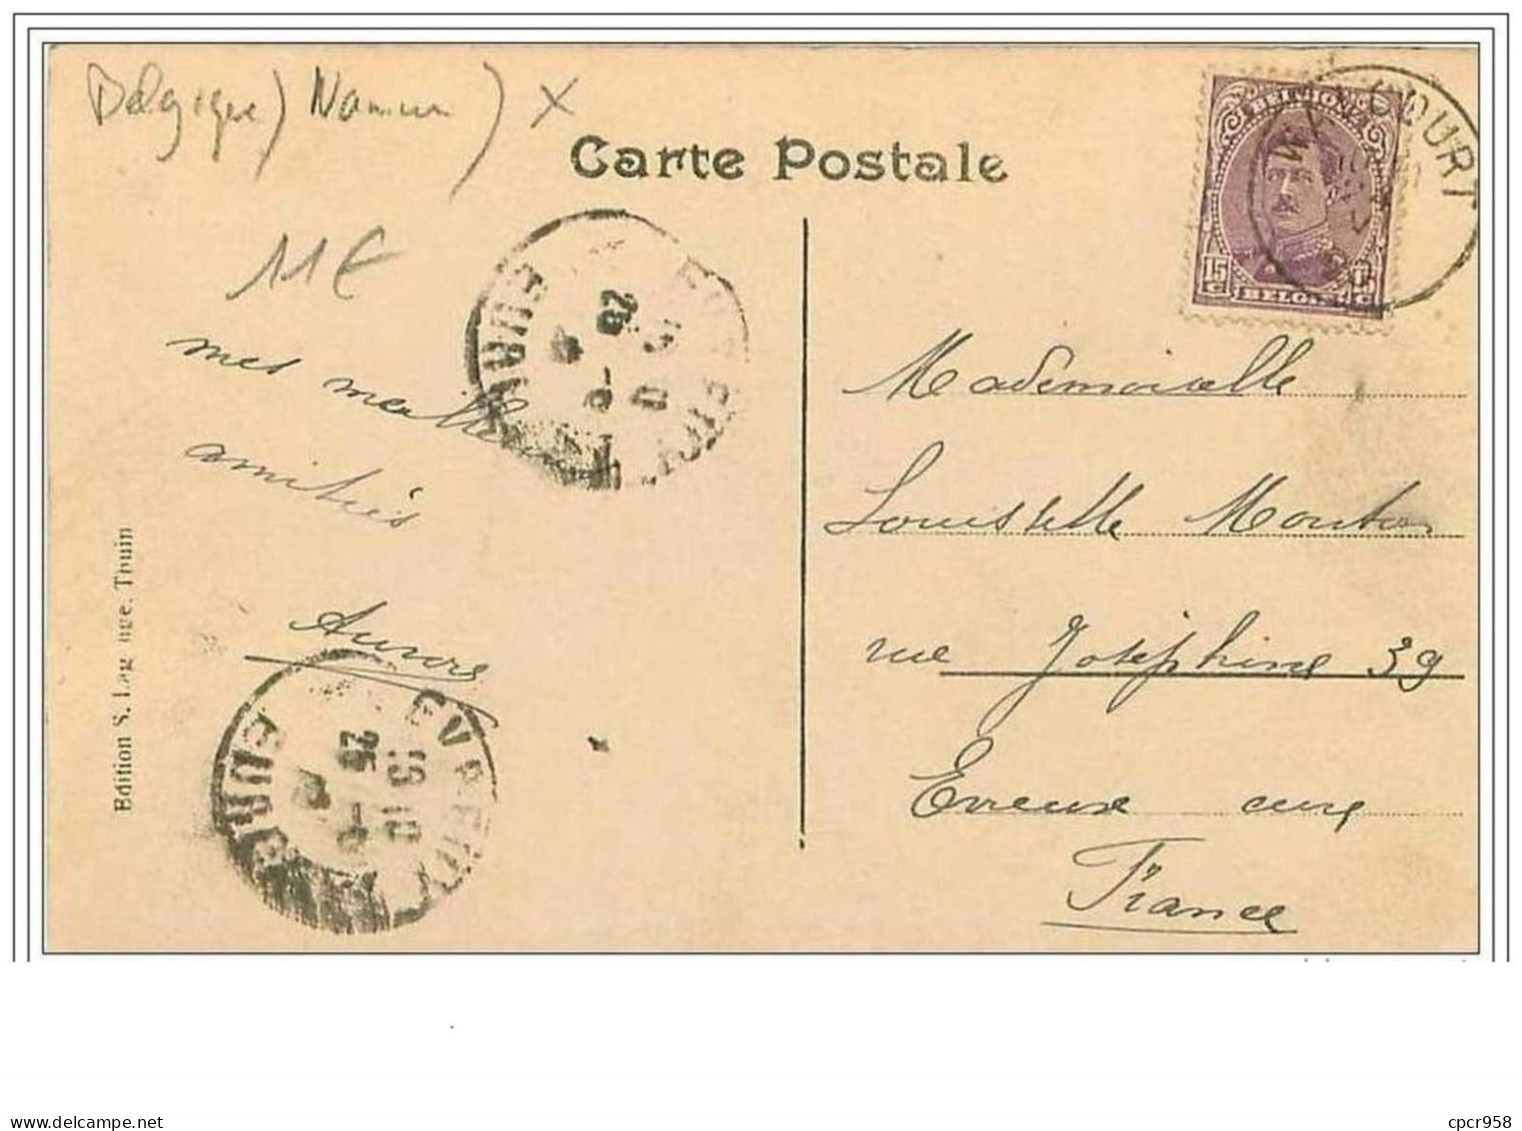 Belgique) Namur) x
Carte Postale
11€
mes meilleures
amitiés
Aurore
Edition S. Thuin
BELGIQUE
15 C
BELGIË
COURT
EURE
26
EVREUX
EURE
25
10
Mademoiselle
Mouton
rue Joséphine 39
Evreux eure
France
www.delcampe.net
cpcr958